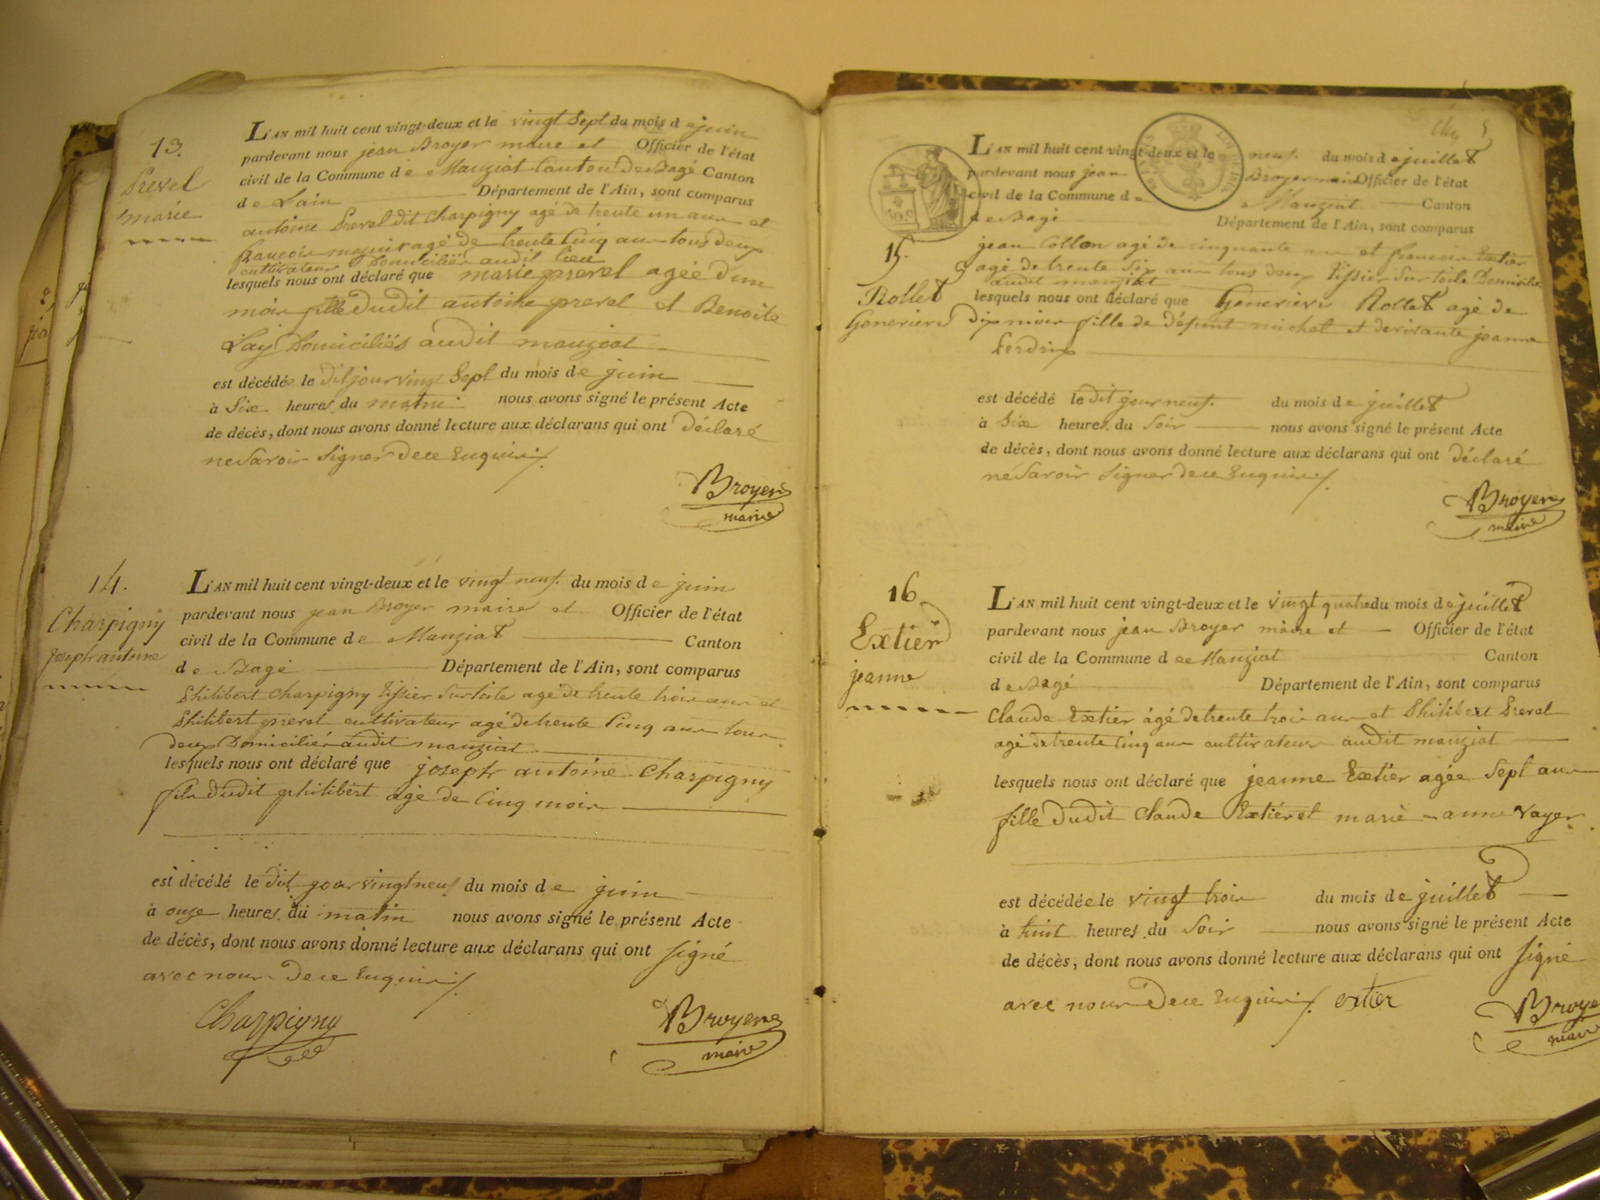 13.
Prevel
marie
L'an mil huit cent vingt-deux et le vingt Sept du mois de juin
pardevant nous jean Broyer maire et Officier de l'état
civil de la Commune de Manziat Canton de Bagé Canton
de Lain Département de l'Ain, sont comparus
antoine Prevel dit Charpigny agé de trente un ans et
francois agé de trente Cinq ans tous deux
cultivateurs Domiciliés audit lieu
lesquels nous ont déclaré que marie prevel agée d'un
mois fille dudit antoine prevel et Benoite
Lay Domiciliés audit manziat
est décédée le dit jour vingt Sept du mois de juin
à Six heures du matin nous avons signé le présent Acte
de décès, dont nous avons donné lecture aux déclarans qui ont déclaré
ne Savoir Signer de ce Enquis
Broyer
maire
14.
Charpigny
joseph antoine
L'an mil huit cent vingt-deux et le vingt neuf du mois de juin
pardevant nous jean Broyer maire et Officier de l'état
civil de la Commune de Manziat Canton
de Bagé Département de l'Ain, sont comparus
Philibert Charpigny tissier Sur toile agé de trente trois ans et
Philibert prevel cultivateur agé de trente Cinq ans tous
deux Domiciliés audit manziat
lesquels nous ont déclaré que joseph antoine Charpigny
fils dudit philibert agé de Cinq mois
est décédé le dit jour vingt neuf du mois de juin
à onze heures du matin nous avons signé le présent Acte
de décès, dont nous avons donné lecture aux déclarans qui ont Signé
avec nous De ce Enquis
Charpigny
Broyer
maire
15.
Rollet
Genevieve
L'an mil huit cent vingt-deux et le neuf du mois de juillet
pardevant nous jean Broyer maire Officier de l'état
civil de la Commune de Manziat Canton
de Bagé Département de l'Ain, sont comparus
jean Collon agé de cinquante ans et francois Extier
agé de trente Six ans tous deux tissier Sur toile Domiciliés
audit manziat
lesquels nous ont déclaré que Genevieve Rollet agé de
Dix mois fille de défunt michel et de vivante jeanne
Perdrix
est décédé le dit jour neuf du mois de juillet
à Six heures du Soir nous avons signé le présent Acte
de décès, dont nous avons donné lecture aux déclarans qui ont déclaré
ne Savoir Signer de ce Enquis
Broyer
maire
16
Extier
jeanne
L'an mil huit cent vingt-deux et le vingt quatre du mois de juillet
pardevant nous jean Broyer maire et Officier de l'état
civil de la Commune de Manziat Canton
de Bagé Département de l'Ain, sont comparus
Claude Extier àgé de trente trois ans et Philibert Prevel
agé de trente Cinq ans cultivateurs audit manziat
lesquels nous ont déclaré que jeanne Extier agée Sept ans
fille dudit Claude Extier et marie-anne vayer
est décédée le vingt trois du mois de juillet
à huit heures du Soir nous avons signé le présent Acte
de décès, dont nous avons donné lecture aux déclarans qui ont Signé
avec nous De ce Enquis extier
Broye
maire